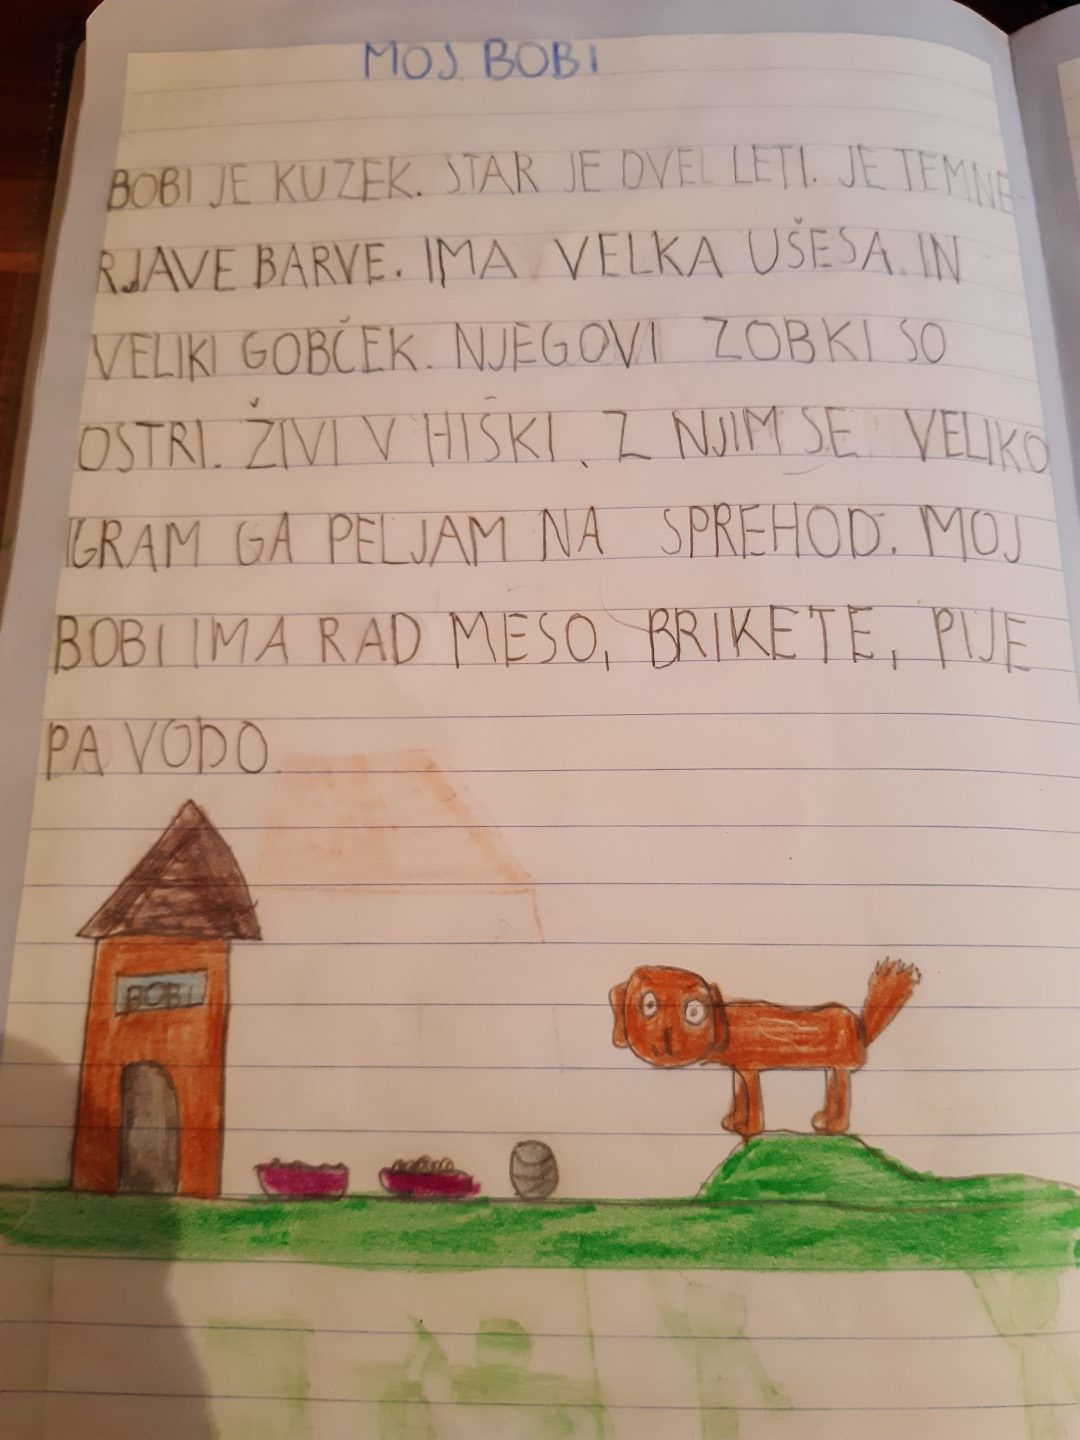 MOJ BOBI
BOBI JE KUZEK. STAR JE DVEL LETI. JE TEMNE
RJAVE BARVE. IMA VELKA UŠESA. IN
VELIKI GOBČEK. NJEGOVI ZOBKI SO
OSTRI. ŽIVI V HIŠKI. Z NJIM SE VELIKO
IGRAM GA PELJAM NA SPREHOD. MOJ
BOBI IMA RAD MESO, BRIKETE, PIJE
PA VODO.
BOBI